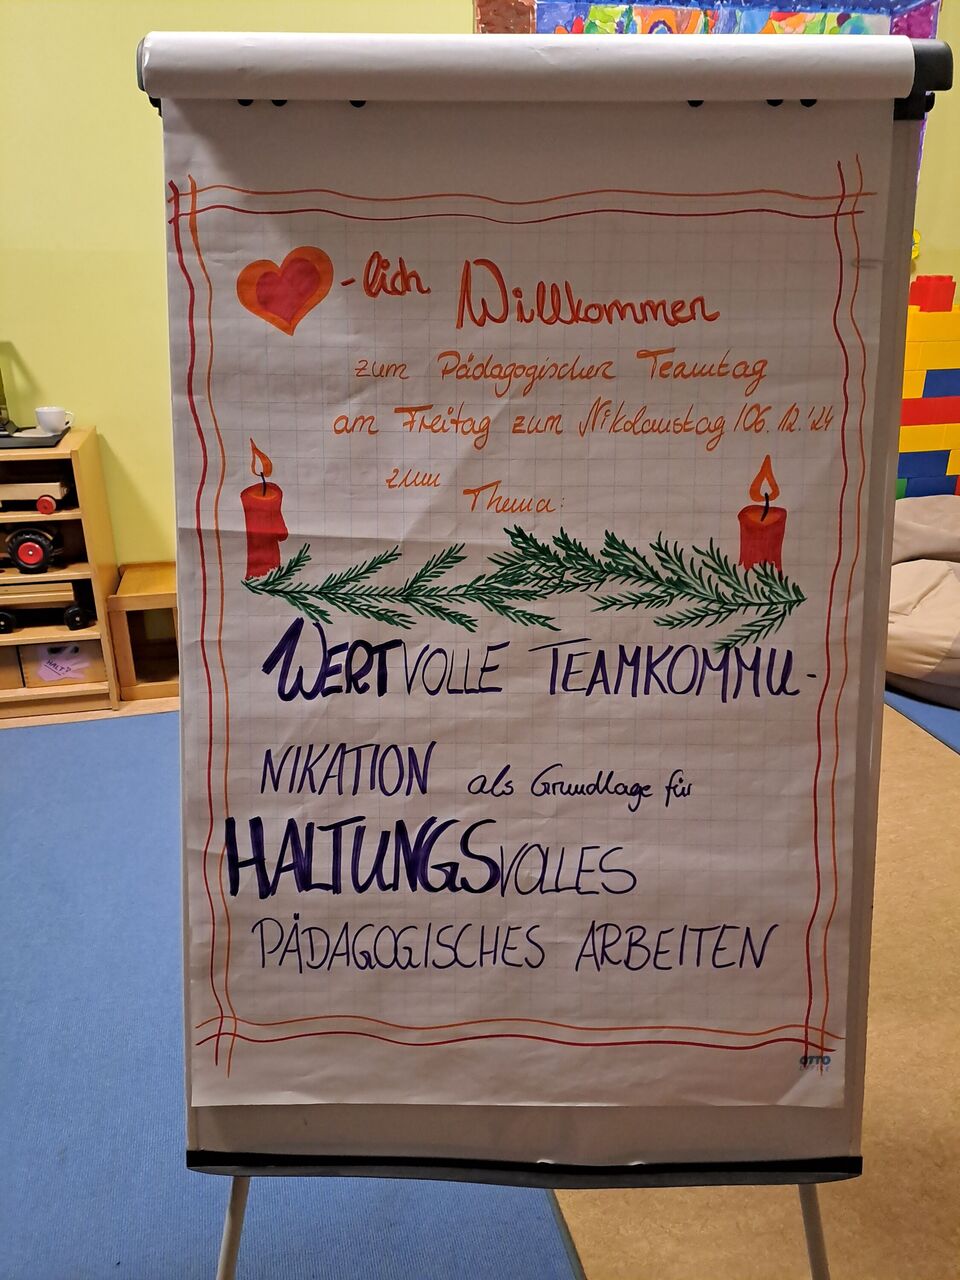 -lich Willkommen
zum Pädagogischen Teamtag
am Freitag zum Nikolaustag /06.12.'24
zum
Thema:
WERTVOLLE TEAMKOMMU-
NIKATION als Grundlage für
HALTUNGSVOLLES
PÄDAGOGISCHES ARBEITEN
OTTO
OFFICE
HALT